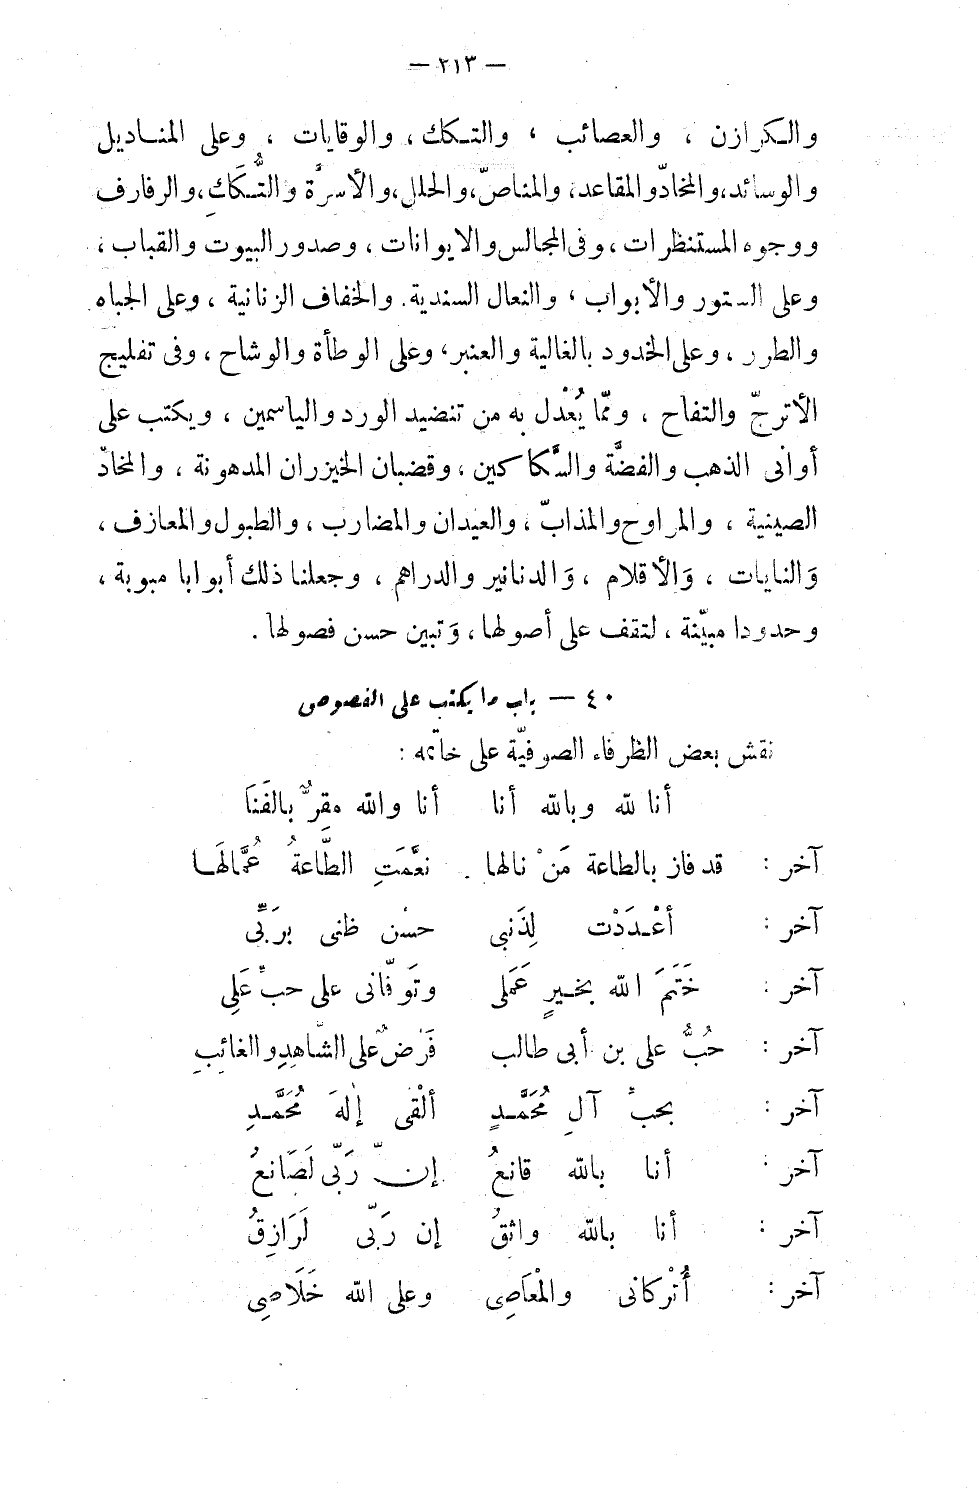 — ٢١٣ —
والكرازن ، والعصائب ، والتكك ، والوقايات ، وعلى المناديل
والوسائد، والمخادّ والمقاعد، والمناصّ، والحلل، والأسرَّة والتُّكَاكِ، والرفارف
ووجوه المستنظرات ، وفى المجالس والايوانات ، وصدور البيوت والقباب ،
وعلى الستور والأبواب ، والنعال السندية. والخفاف الزنانية ، وعلى الجباه
والطرر ، وعلى الخدود بالغالية والعنبر، وعلى الوطأة والوشاح ، وفى تفليج
الأترجّ والتفاح ، وممّا يُعْدل به من تنضيد الورد والياسمين ، ويكتب على
أوانى الذهب والفضَّة والسَّكاكين ، وقضبان الخيزران المدهونة ، والمخادّ
الصينية ، والمراوح والمذابّ ، والعيدان والمضارب ، والطبول والمعازف ،
وَالنايات ، وَالأقلام ، وَالدنانير والدراهم ، وجعلنا ذلك أبوابا مبوبة ،
وحدودا مبيّنة ، لتقف على أصولها ، وَتبين حسن فصولها .
٤٠ — باب ما يكتب على الفصوص
نقش بعض الظرفاء الصوفيّة على خاتمه :
أنا لله وبالله أنا أنا والله مقِرٌّ بالفَنَا
آخر : قد فاز بالطاعة مَنْ نالها . نعَّمَتِ الطَّاعةُ عُمَّالَهَا
آخر : أعْدَدْت لِذَنبى حسْن ظنى برَبِّى
آخر : خَتَمَ الله بخيرٍ عَمَلى وتَوفّانى على حبّ عَلِى
آخر : حُبُّ على بن أبى طالب فَرْضٌ على الشَّاهِدِ والغائِبِ
آخر : بحبّ آلِ مُحَمَّدٍ ألْقى إلهَ مُحَمَّدِ
آخر : أنا بالله قانعُ إنّ رَبّى لَصَانعُ
آخر : أنا بالله واثقُ إن رَبّى لَرَازِقُ
آخر : أُتْركانى والمْعَاصِى وعلى الله خَلَاصِى